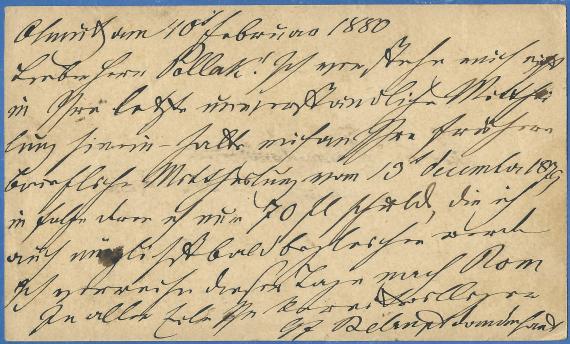 Olmütz am 10t Februar 1880
Lieber Herr Pollak! Ich verstehe mich nicht
in Ihre letzte unverständliche Mitthei
lung hinein - halte mich an Ihre frühere
briefliche Mittheilung vom 13t Dezember 1879
in Folge deren ich nur 70 fl schulde, die ich
auch möglichst bald begleichen werde
Ich verreise dieser Tage nach Rom
In aller Eile Ihr